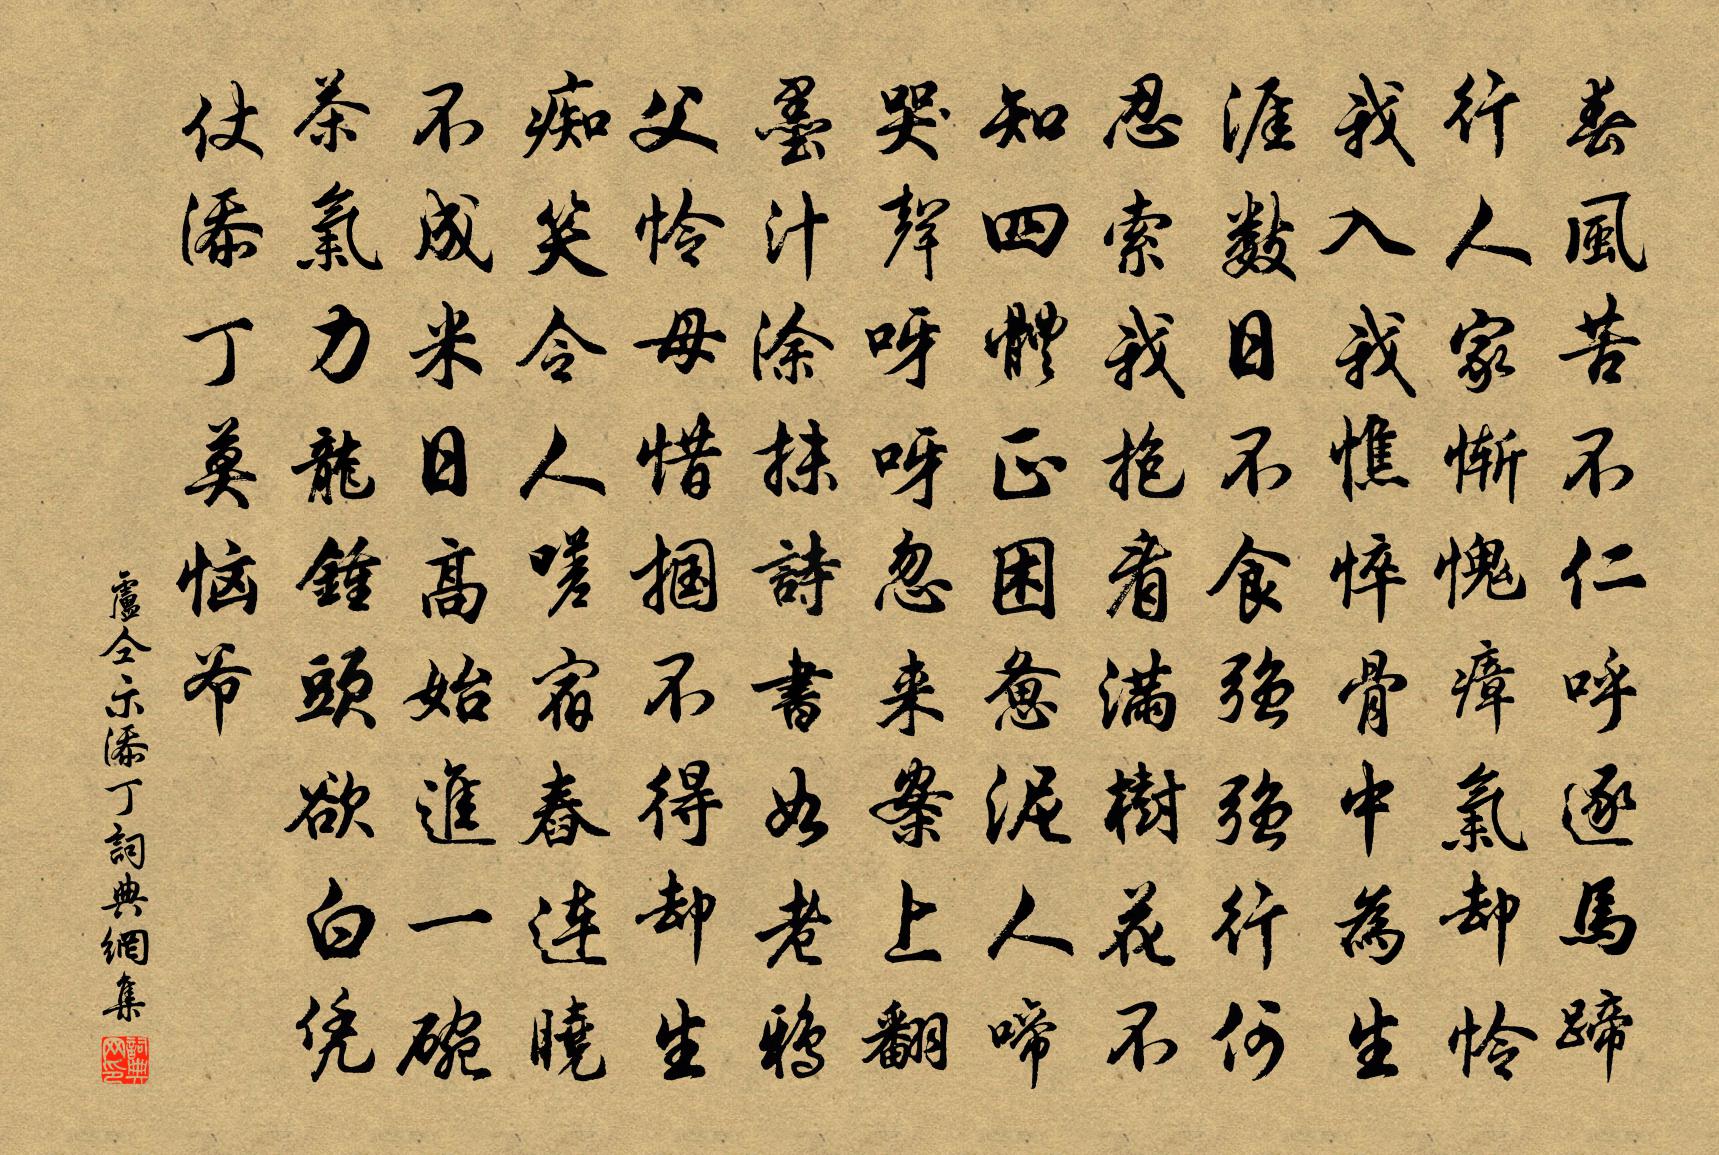 春風苦不仁呼逐馬蹄
行人家慚愧瘴氣却憐
我入我憔悴骨中為生
涯數日不食強強行何
忍索我抱看滿樹花不
知四體正困憊泥人啼
哭聲呀呀忽来案上翻
墨汁涂抹詩書如老鴉
父憐母惜掴不得却生
痴笑令人嗟宿舂連曉
不成米日高始進一碗
茶氣力龍鍾頭欲白凭
仗添丁莫恼爷
盧仝示添丁詞典網集
詞典网印